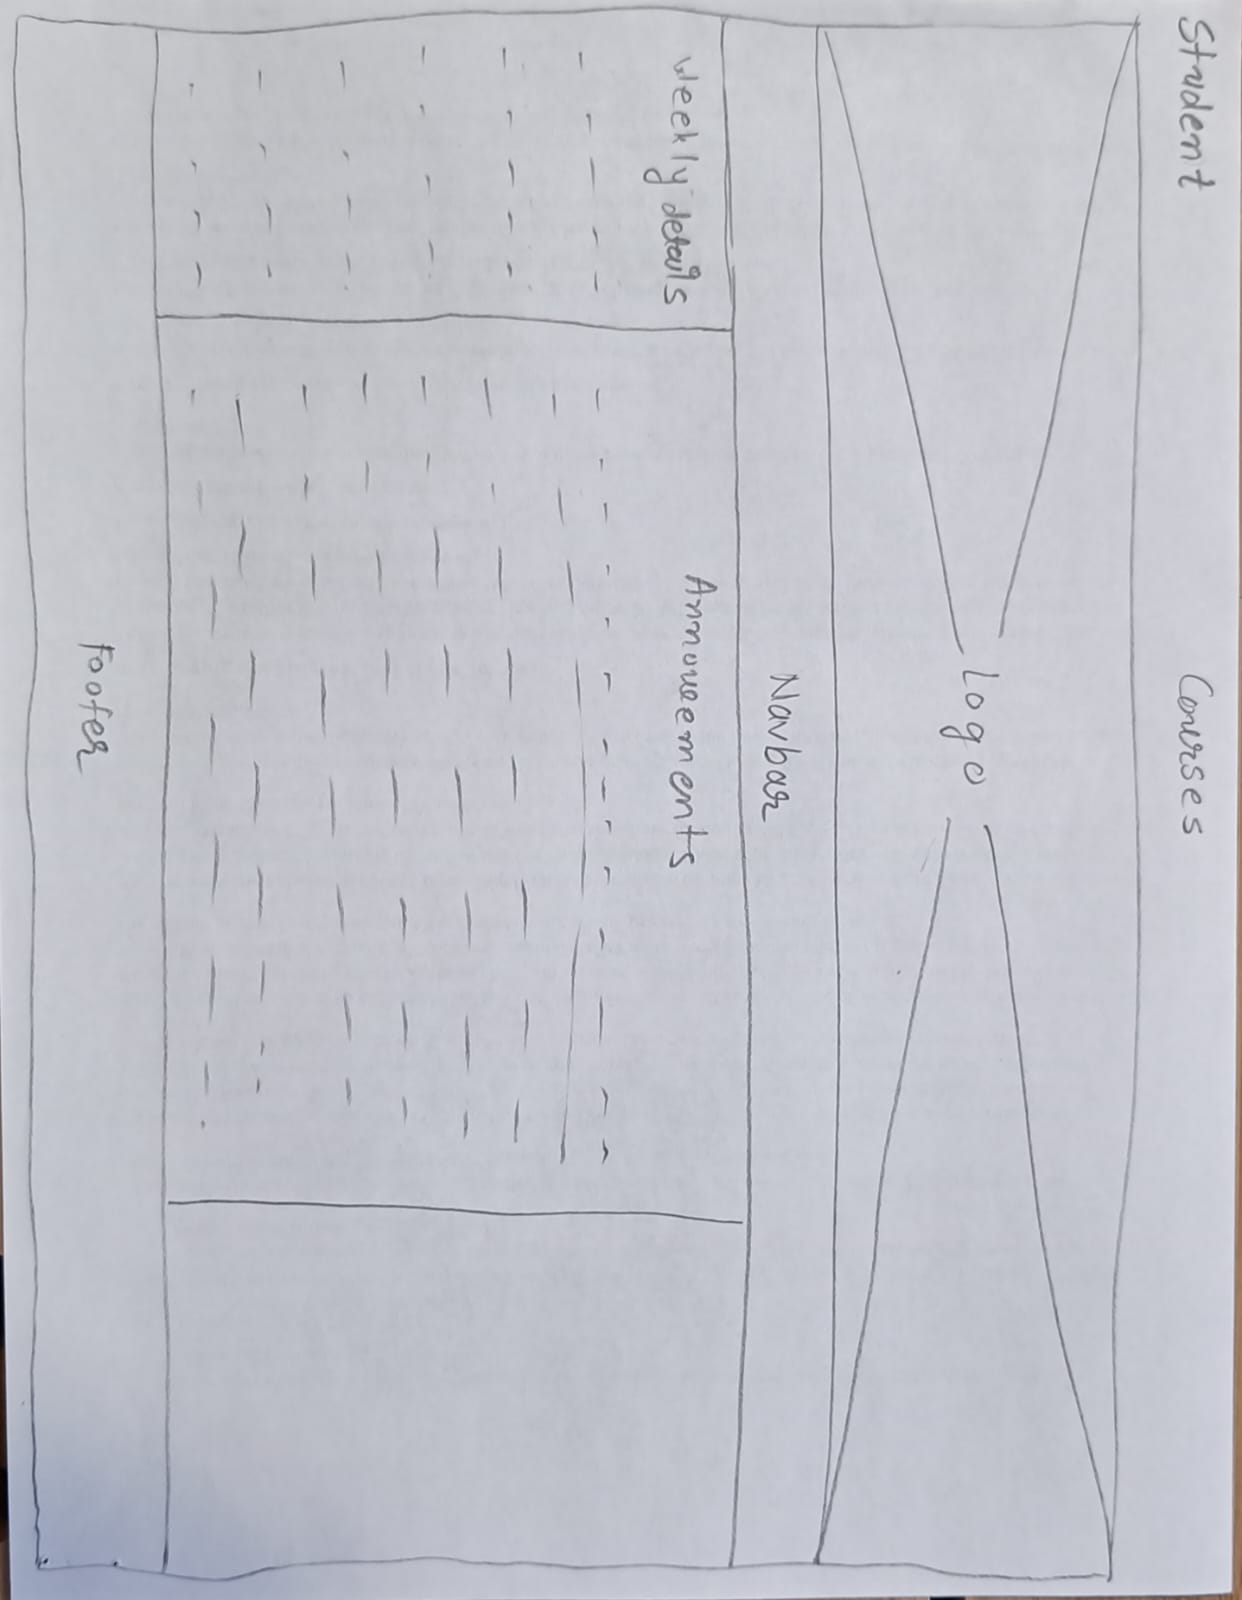 Student
Courses
Logo
Navbar
Weekly details
Annoucements
Footer